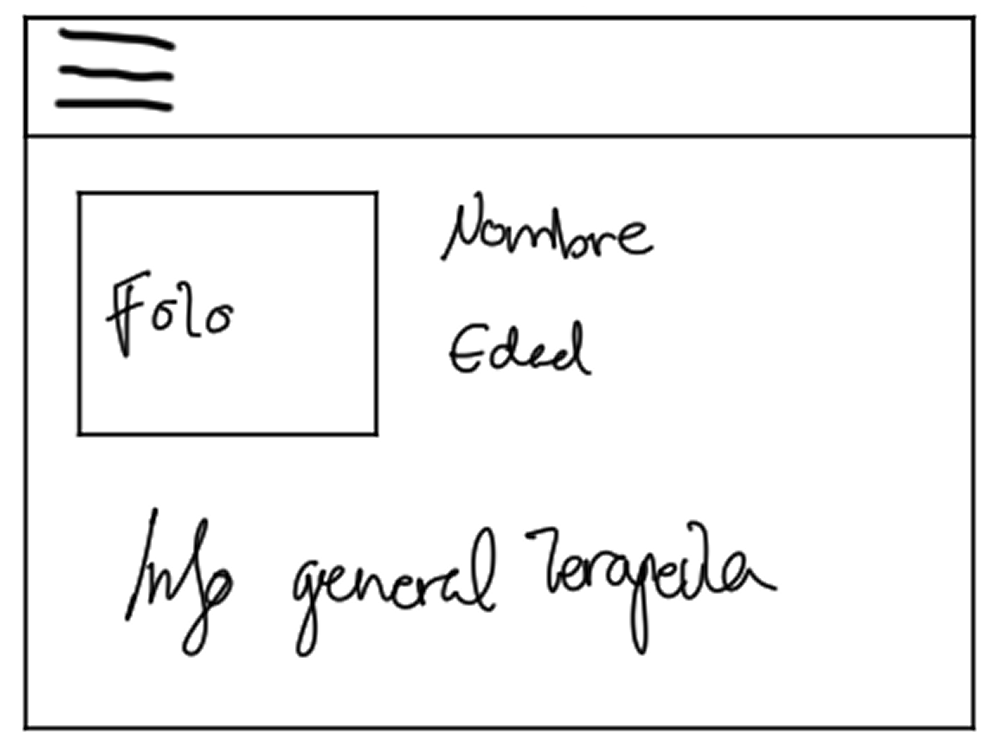 Foto
Nombre
Edad
Info general Terapeuta